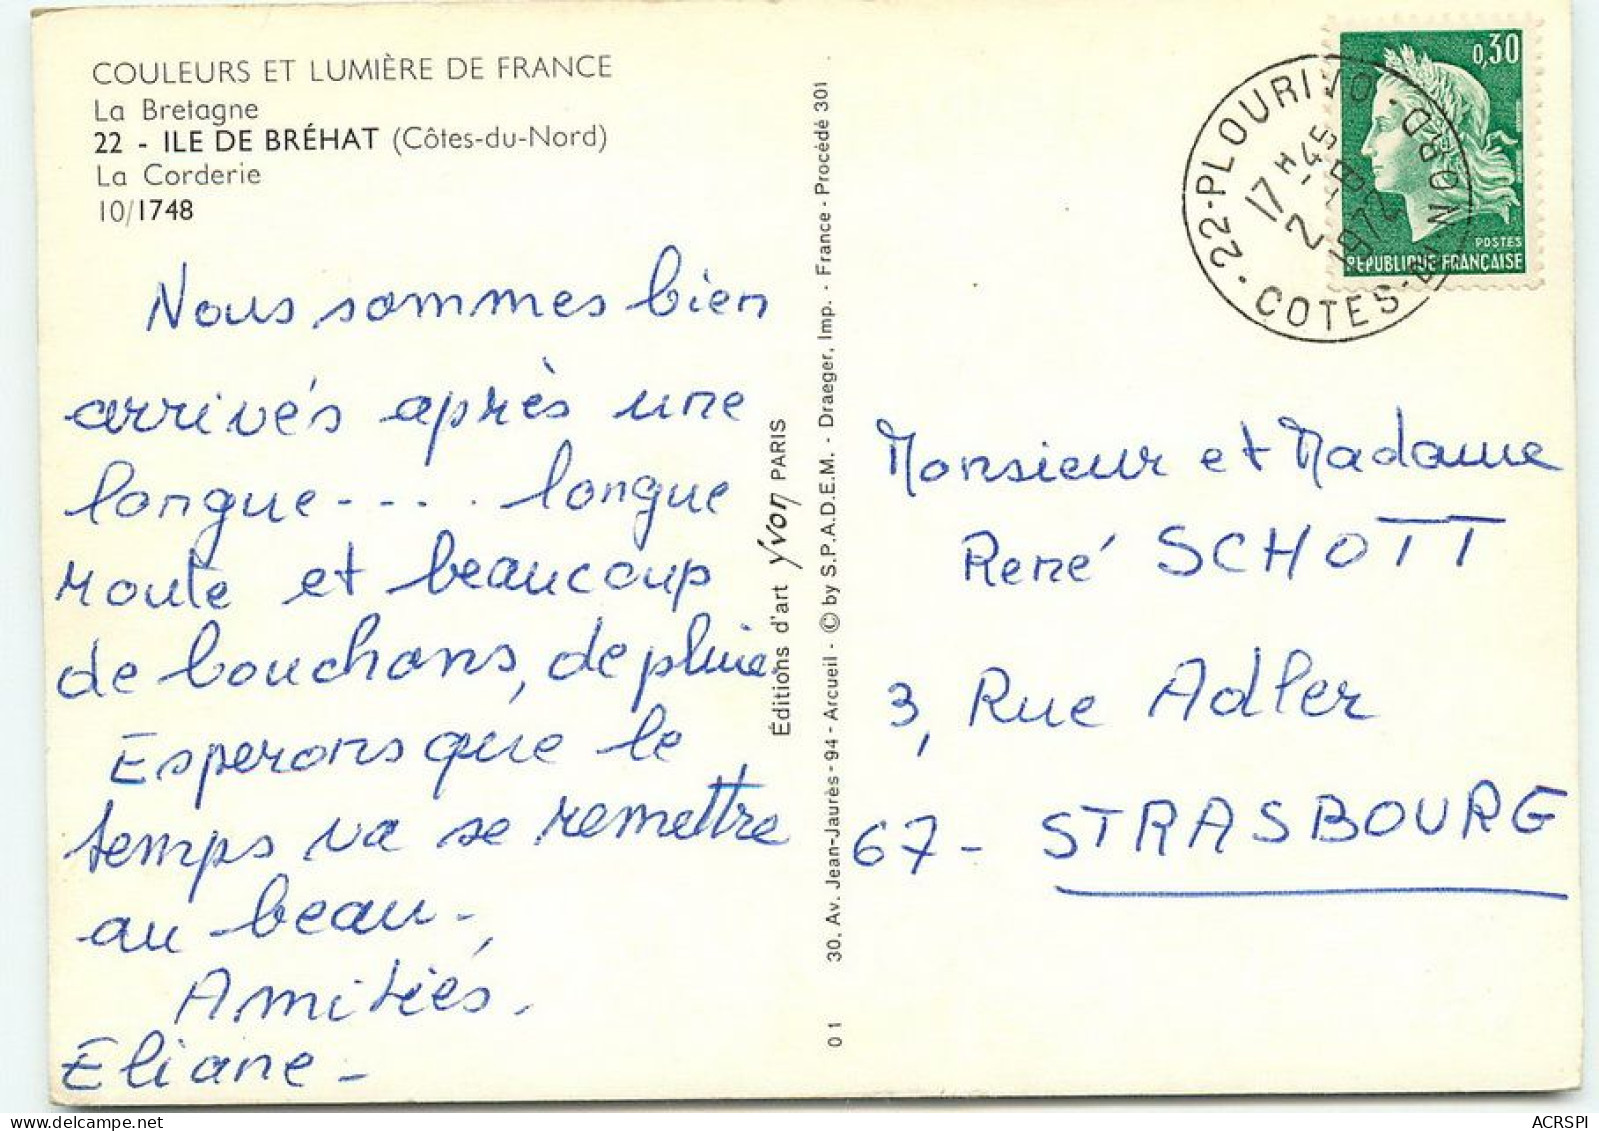 COULEURS ET LUMIÈRE DE FRANCE
La Bretagne
22 - ILE DE BRÉHAT (Côtes-du-Nord)
La Corderie
10/1748
Nous sommes bien
arrivés après une
longue - . . . longue
route et beaucoup
de bouchons, de pluie
Esperons que le
temps va se remettre
au beau -
Amitiés.
Eliane -
Éditions d'art Yvon PARIS
01 30, Av. Jean-Jaurès - 94 - Arcueil - © by S.P.A.D.E.M. - Draeger, Imp. - France - Procédé 301
22-PLOURIVO - COTES-DU-NORD
17 H 45
2 - 8
1972
0,30
POSTES
REPUBLIQUE FRANÇAISE
Monsieur et Madame
René SCHOTT
3, Rue Adler
67 - STRASBOURG
ACRSPI